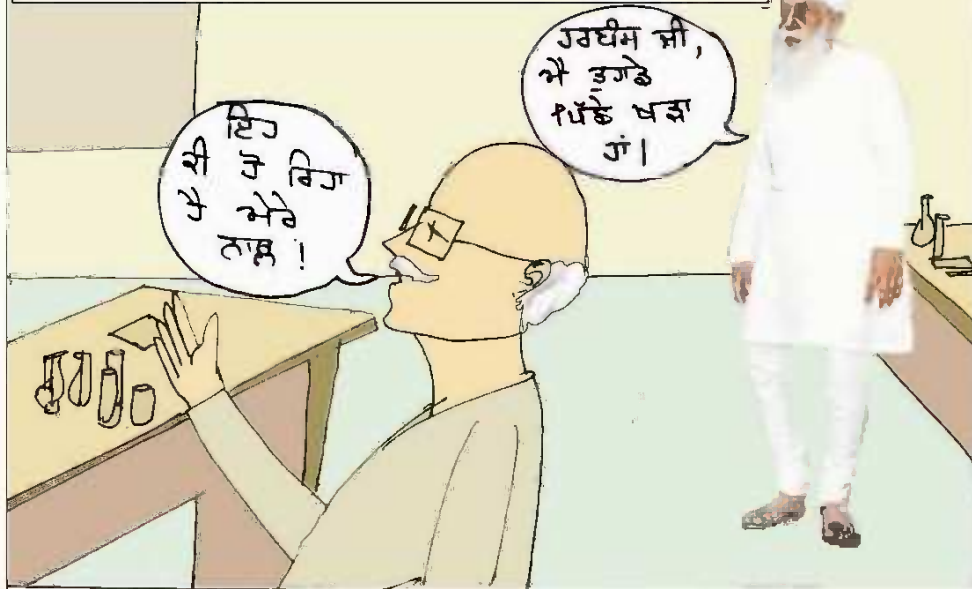 ਇਹ
ਕੀ ਹੋ ਰਿਹਾ
ਹੈ ਮੇਰੇ
ਨਾਲ !
ਹਰਬੰਸ ਜੀ,
ਮੈਂ ਤੁਹਾਡੇ
ਪਿੱਛੇ ਖੜਾ
ਹਾਂ।